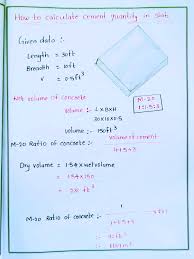 How to calculate cement quantity in slab
Given data :-
Length = 30ft
Breadth = 10ft
= 0.5ft
Net volume of concrete
volume :- L×B×H
30×10×0.5
volume :- 150ft³
M-20
1:1.5:3
M-20 Ratio of concrete :- volume of cement
1+1.5+3
Dry volume = 1.54 × net volume
= 1.54×150
= 231 ft³
M-20 Ratio of concrete :-
1+1.5+3